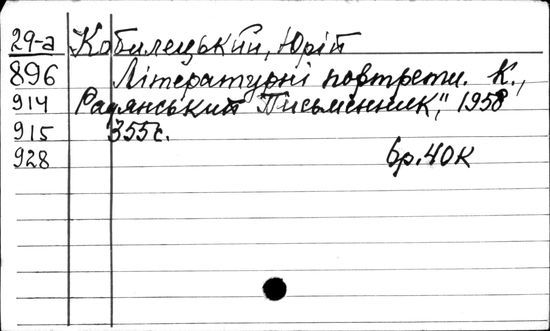 29-а Кобилецький, Юрій
896 Літературні портрети. К.,
914 Радянський Письменник", 1958
915 355с.
928 6р.40к